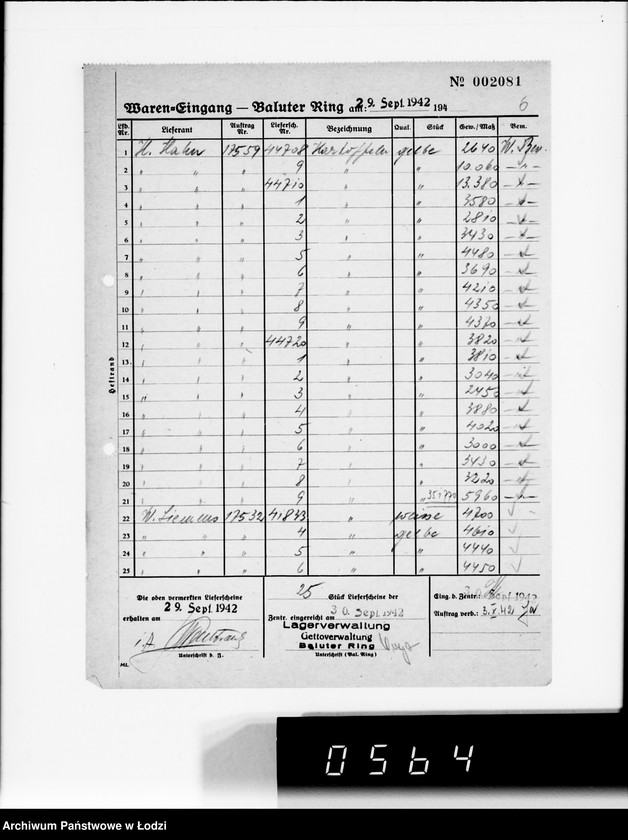 Nº 002081
Waren=Eingang — Baluter Ring am: 29. Sept. 1942 194
6
Lfd. Nr. Lieferant Auftrag Nr. Liefersch. Nr. Bezeichnung Qual. Stück Gew./Maß Bem.
1 H. Hahn 17559 44708 Kartoffeln gelbe 2640 W. Bev.
2 " " " 9 " " 10.060 — " —
3 " " " 44710 " " 13.380 — " —
4 " " " 1 " " 3580 — " —
5 " " " 2 " " 2810 — " —
6 " " " 3 " " 3430 — " —
7 " " " 5 " " 4480 — " —
8 " " " 6 " " 3690 — " —
9 " " " 7 " " 4210 — " —
10 " " " 8 " " 4350 — " —
11 " " " 9 " " 4370 — " —
12 " " " 44720 " " 3820 — " —
13 " " " 1 " " 3810 — " —
14 " " " 2 " " 3040 — " —
15 " " " 3 " " 2450 — " —
16 " " " 4 " " 3880 — " —
17 " " " 5 " " 4020 — " —
18 " " " 6 " " 3000 — " —
19 " " " 7 " " 3430 — " —
20 " " " 8 " " 3220 — " —
21 " " " 9 " " 5960 — " —
22 W. Siemens 17532 41833 " weisse 4700
23 " " " 4 " gelbe 4610
24 " " " 5 " " 4440
25 " " " 6 " " 4450
Heftrand
Die oben vermerkten Lieferscheine
29. Sept. 1942
erhalten am
i.A.
Unterschrift d. J.
ML.
25 Stück Lieferscheine der
30. Sept. 1942
Zentr. eingereicht am
Lagerverwaltung
Gettoverwaltung
Baluter Ring
Unterschrift (Bal. Ring)
Eing. b. Zentr.: Sept. 1942
Auftrag verb.:
0564
Archiwum Państwowe w Łodzi